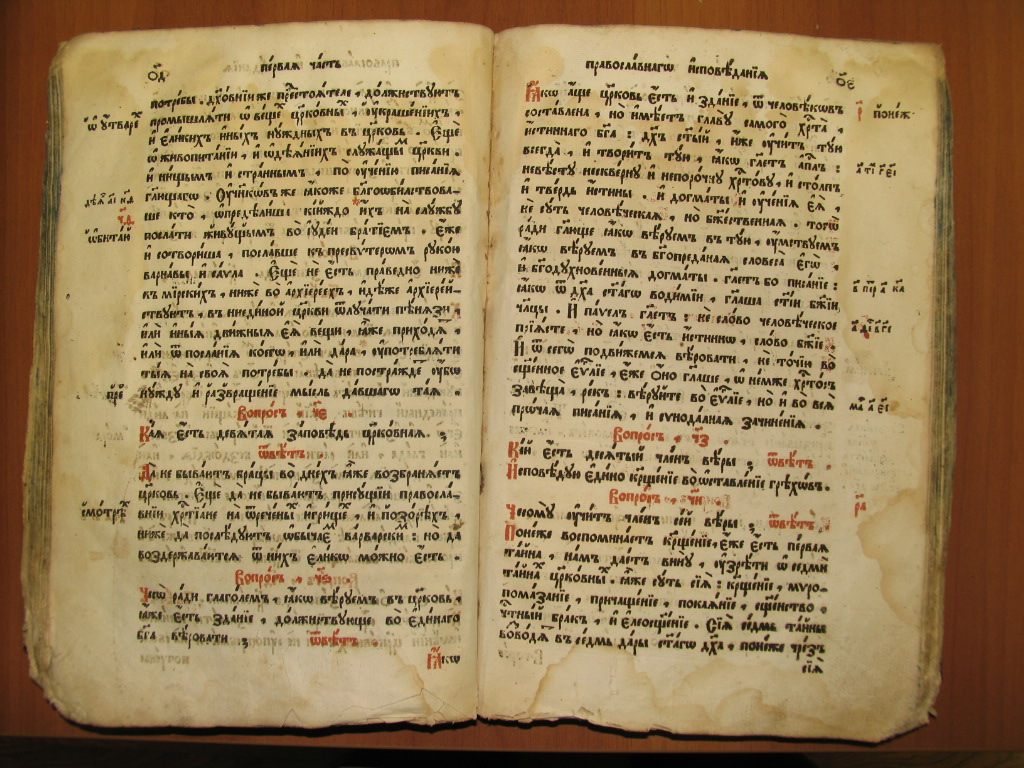 о҃д
пе́рваѧ ча́сть
потре́бы . дх҃о́внїи же предстоѧ́теле , до́лжнствꙋютъ
промышлѧ́ти ѡ҆ ве́щехъ црко́вныхъ , и҆ ᲂу҆краше́нїихъ ,
и҆ є҆ли́кихъ и҆ны́хъ нꙋ́жныхъ въ цр҃ковь . Є҆ще́
ѡ҆ живопита́нїи , и҆ ѡ҆дѣѧ́нїихъ слꙋжа́щымъ цр҃кви .
и҆ ни́щымъ и҆ стра́ннымъ , по ᲂу҆че́нїи писа́нїѧ
гл҃ющагѡ . Ѹ҆ченикѡ́въ же ꙗ҆́коже бл҃гоѡби́лствова-
ше кто̀ , ѡ҆предѣли́ша кі́йждо и҆́хъ на слꙋ́жбꙋ
посла́ти живꙋ́щымъ во і҆ꙋде́и бра́тїємъ . Є҆́же
и҆ сотвори́ша , посла́вше къ пресвѵ́терѡмъ рꙋко́ю
варна́вы и҆ са́ѵла . Є҆ще́ не є҆́сть пра́ведно нижѐ
въ мі́рскихъ , нижѐ во а҆рхїере́ехъ , и҆дѣ́же а҆рхїере́й-
ствꙋютъ , въ ни є҆ди́ной цр҃кви ѿлꙋча́ти пѣ́нѧзи ,
и҆лѝ и҆ны́ѧ дви́жныѧ є҆ѧ̀ ве́щи , ꙗ҆́же прихо́дѧтъ ,
и҆лѝ ѿ посла́нїѧ ко́егѡ , и҆лѝ да́ра , ᲂу҆потреблѧ́ти
ты́ѧ на своѧ̀ потре́бы . да не постра́ждетъ ᲂу҆́бѡ
нꙋ́ждꙋ и҆ развраще́нїе мы́сль да́вшагѡ та́ѧ .
Вопро́съ , ч҃є .
Ка́ѧ є҆́сть девѧ́таѧ за́повѣдь цр҃ко́внаѧ . ;
ѿвѣ́тъ .
Да не быва́ютъ бра́цы во дне́хъ ꙗ҆́же возбранѧ́етъ
цр҃ковь . Є҆ще́ да не быва́ютъ прису́щїи правосла́-
внїи хр҃тїа́не на ѿрече́ны и҆гри́ще , и҆ позо́рехъ ,
нижѐ да послѣ́дꙋютъ ѡ҆бы́чаємъ варва́рски : но да
воздержава́ютсѧ ѿ ни́хъ є҆ли́кѡ мо́жно є҆́сть .
Вопро́съ , ч҃ѕ .
Чесѡ̀ ра́ди глаго́лемъ , ꙗ҆́кѡ вѣ́рꙋемъ въ цр҃ковь ,
ꙗ҆́же є҆́сть зда́нїе , до́лжнствꙋюще во є҆ди́наго
бг҃а вѣ́ровати ; ѿвѣ́тъ .
Ꙗ҆́кѡ
ѡ҆ ᲂу҆́тварехъ
ѡ҆бита́й
смотрѝ
правосла́внагѡ и҆сповѣ́данїѧ
о҃є
Ꙗ҆́кѡ а҆́ще цр҃ковь є҆́сть и҆ зда́нїе , ѿ человѣ́кѡвъ
соста́влена , но и҆мѣ́етъ главꙋ̀ самого̀ хр҃та̀ ,
и҆́стиннаго бг҃а : дх҃ъ ст҃ы́й , и҆́же ᲂу҆чи́тъ тꙋ́ю
всегда̀ , и҆ твори́тъ тꙋ́ю , ꙗ҆́кѡ гл҃етъ а҆пл҃ъ :
невѣ́стꙋ нескве́рнꙋ и҆ непоро́чнꙋ хр҃то́вꙋ , и҆ сто́лпъ
и҆ тве́рдь и҆́стины . и҆ догма́ты и҆ ᲂу҆че́нїѧ є҆ѧ̀ ,
не сꙋ́ть человѣ́ческаѧ , но бж҃е́ственнаѧ . тогѡ̀
ра́ди гл҃юще ꙗ҆́кѡ вѣ́рꙋемъ въ тꙋ́ю , ᲂу҆́мствꙋемъ
ꙗ҆́кѡ вѣ́рꙋемъ въ бг҃опреда́наѧ словеса̀ є҆гѡ̀ ,
и҆ бг҃одꙋхнове́нныѧ догма́ты . гл҃етъ бо писа́нїе :
ꙗ҆́кѡ ѿ дх҃а ст҃а́гѡ води́мїи , гл҃аша ст҃і́и бж҃їи
чл҃цы . И҆ па́ѵелъ гл҃етъ : не сло́во человѣ́ческое
прїѧ́сте , но ꙗ҆́кѡ є҆́сть и҆́стиннѡ , сло́во бж҃їе .
И҆ ѿ сегѡ̀ подви́жемсѧ вѣ́ровати , не то́чїю во
сщ҃е́нное є҆ѵⷢ҇лїе , є҆́же ѻ҆́но гл҃аше , ѡ҆ не́мже хр҃то́съ
завѣща̀ , ре́къ : вѣ́рꙋйте во є҆ѵⷢ҇лїе , но и҆ во всѧ̀
про́чаѧ писа́нїѧ , и҆ сѵнода́лнаѧ зачине́нїѧ .
Вопро́съ , ч҃з .
Кі́й є҆́сть десѧ́тый чле́нъ вѣ́ры ; ѿвѣ́тъ .
И҆сповѣ́дꙋю є҆ди́но кр҃ще́нїе , во ѡ҆ставле́нїе грѣхѡ́въ .
Вопро́съ , ч҃и .
Чесомꙋ̀ ᲂу҆чи́тъ чле́нъ се́й вѣ́ры ; ѿвѣ́тъ .
Поне́же воспомина́етъ кр҃ще́нїе , є҆́же є҆́сть пе́рваѧ
та́йна , на́мъ дае́тъ винꙋ̀ , ᲂу҆зрѣ́ти ѡ҆ седмѝ
та́йнахъ црко́вныхъ . ꙗ҆́же сꙋ́ть сїѧ̀ : кр҃ще́нїе , мѵро-
пома́занїе , причаще́нїе , покаѧ́нїе , сщ҃е́нство ,
ч҃тный бра́къ , и҆ є҆леосщ҃е́нїе . Сїѧ̀ се́дмь та́йны
возво́дѧтъ въ се́дмь да́ры ст҃а́гѡ дх҃а , поне́же чре́зъ
сїѧ̀
поне́ж-